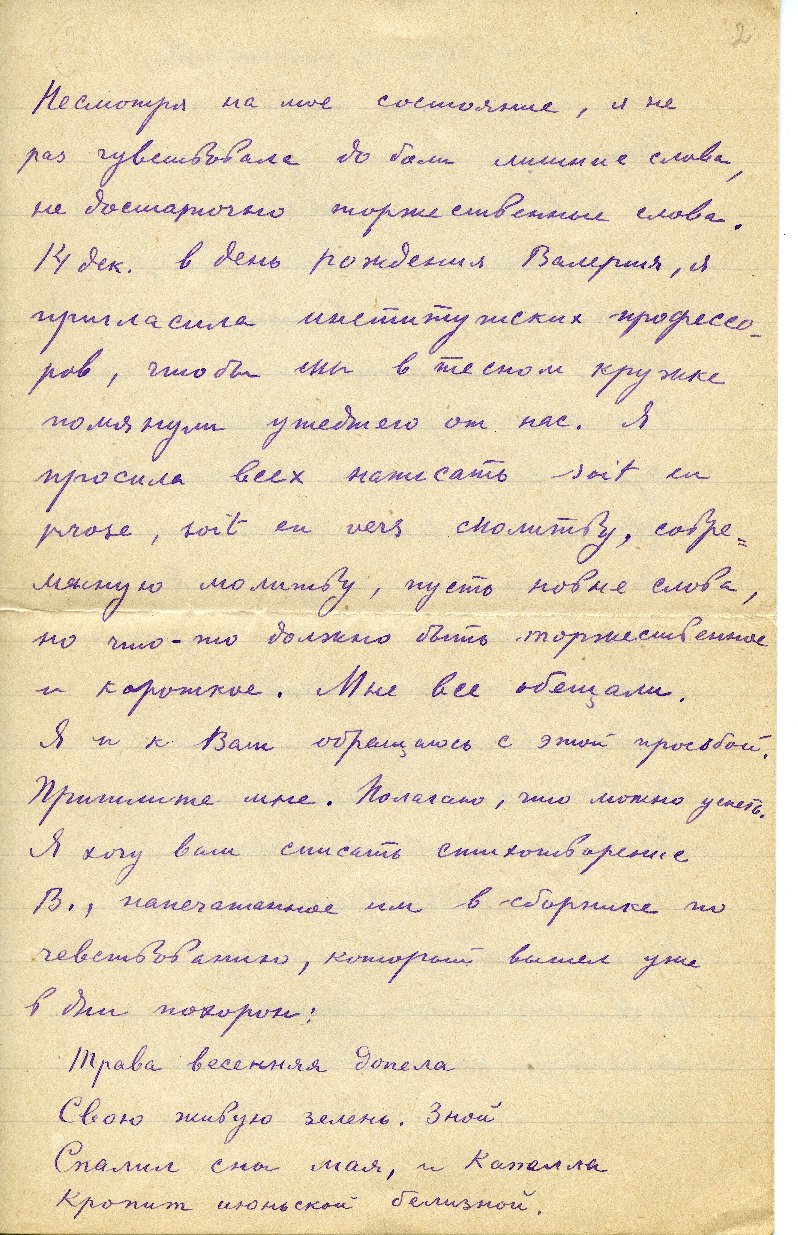 2
Несмотря на мое состояние, я не
раз чувствовала до боли лишние слова,
не достаточно торжественные слова.
14 дек. в день рождения Валерия, я
пригласила институтских профессо-
ров, чтобы они в тесном кружке
помянули ушедшего от нас. Я
просила всех написать soit en
prose, soit en vers молитву, совре=
менную молитву, пусть новые слова,
но что-то должно быть торжественное
и короткое. Мне все обещали.
Я и к Вам обращаюсь с этой просьбой.
Пришлите мне. Полагаю, что можно успеть.
Я хочу вам списать стихотворение
В., напечатанное им в сборнике по
чевствованию, который вышел уже
в дни похорон:
Трава весенняя допела
Свою живую зелень. Зной
Спалил сны мая, и Капелла
Кропит июньской белизной.